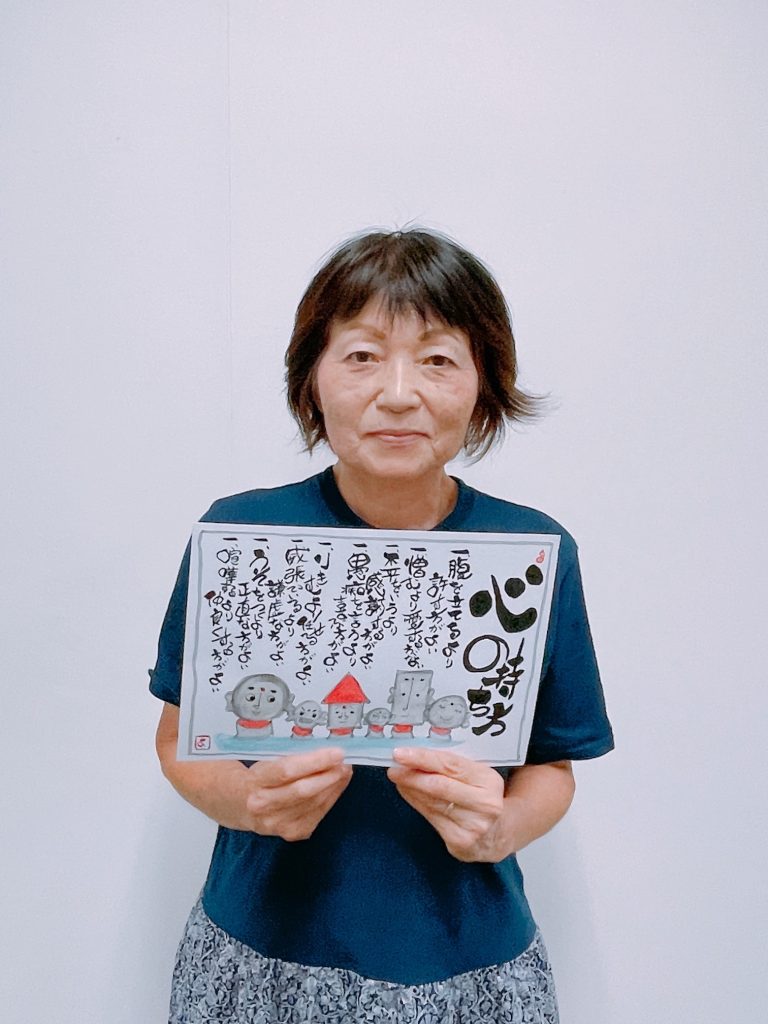 心の持ち方
一、腹を立てるより
許す方がよい
一、憎むより愛する方がよい
一、不平をいうより
感謝する方がよい
一、愚痴を言うより
喜ぶ方がよい
一、りきむより任せる方がよい
一、威張るより
謙虚な方がよい
一、うそをつくより
正直な方がよい
一、喧嘩するより
仲良くする方がよい